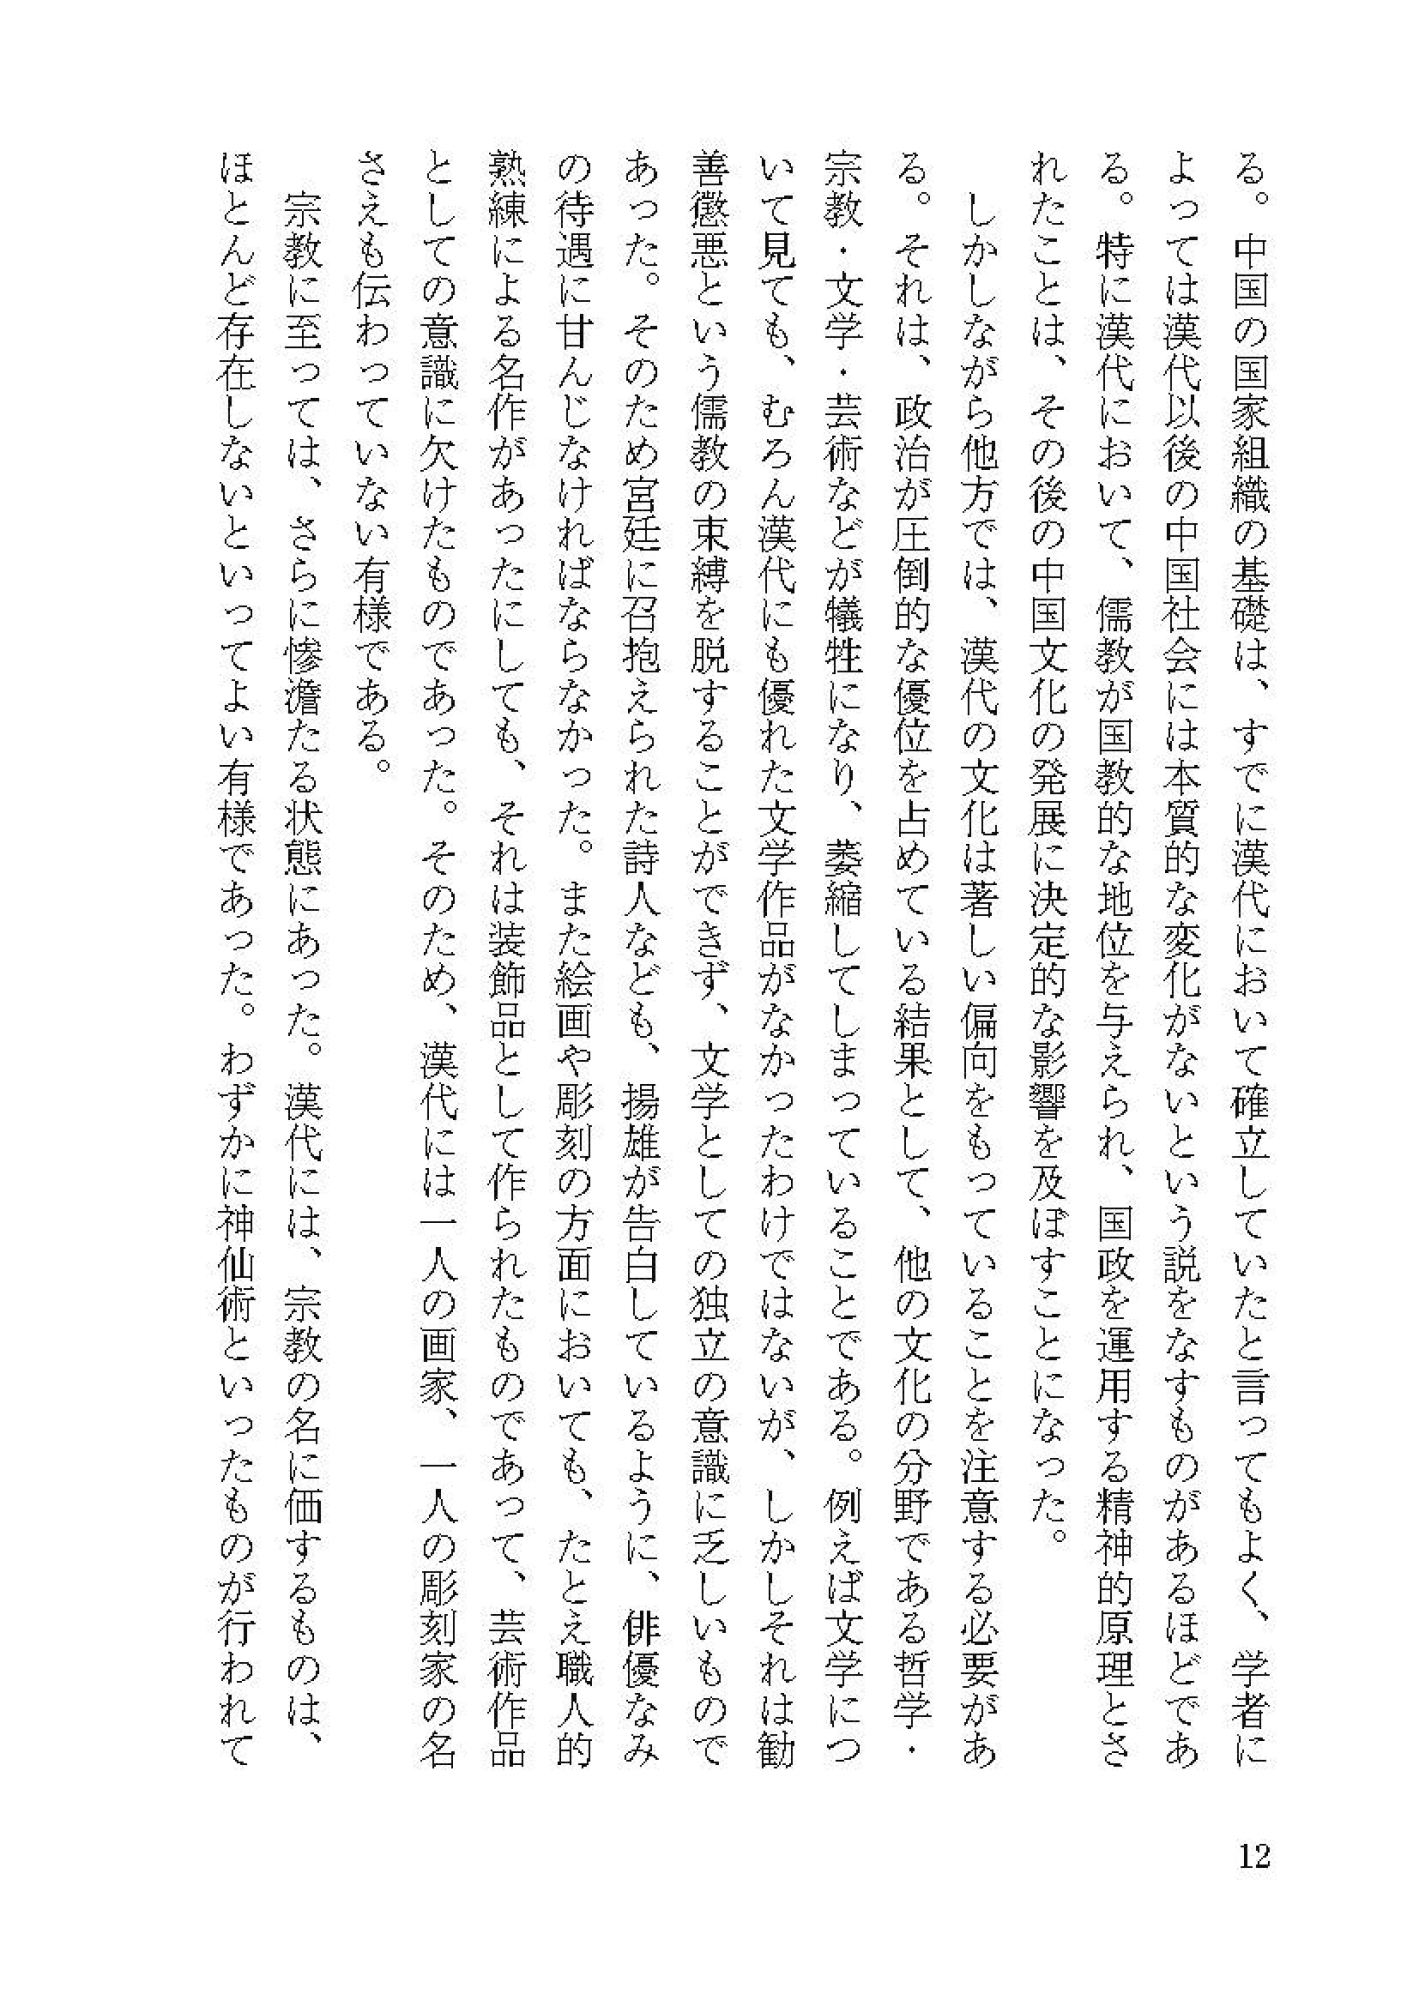 る。中国の国家組織の基礎は、すでに漢代において確立していたと言ってもよく、学者に
よっては漢代以後の中国社会には本質的な変化がないという説をなすものがあるほどであ
る。特に漢代において、儒教が国教的な地位を与えられ、国政を運用する精神的原理とさ
れたことは、その後の中国文化の発展に決定的な影響を及ぼすことになった。
　しかしながら他方では、漢代の文化は著しい偏向をもっていることを注意する必要があ
る。それは、政治が圧倒的な優位を占めている結果として、他の文化の分野である哲学・
宗教・文学・芸術などが犠牲になり、萎縮してしまっていることである。例えば文学につ
いて見ても、むろん漢代にも優れた文学作品がなかったわけではないが、しかしそれは勧
善懲悪という儒教の束縛を脱することができず、文学としての独立の意識に乏しいもので
あった。そのため宮廷に召抱えられた詩人なども、揚雄が告白しているように、俳優なみ
の待遇に甘んじなければならなかった。また絵画や彫刻の方面においても、たとえ職人的
熟練による名作があったにしても、それは装飾品として作られたものであって、芸術作品
としての意識に欠けたものであった。そのため、漢代には一人の画家、一人の彫刻家の名
さえも伝わっていない有様である。
　宗教に至っては、さらに惨澹たる状態にあった。漢代には、宗教の名に価するものは、
ほとんど存在しないといってよい有様であった。わずかに神仙術といったものが行われて
12